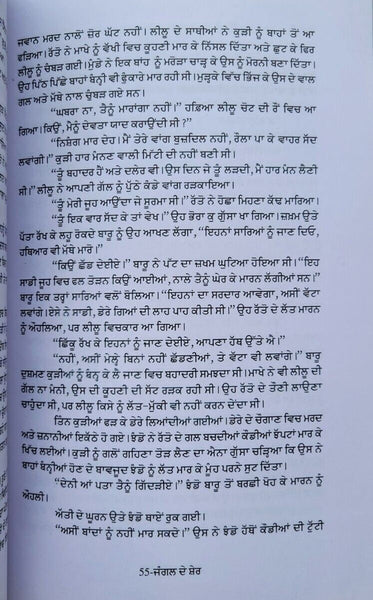 ਜਵਾਨ ਮਰਦ ਨਾਲੋਂ ਜ਼ੋਰ ਘੱਟ ਨਹੀਂ। ਲੀਲੂ ਦੇ ਸਾਥੀਆਂ ਨੇ ਕੁੜੀ ਨੂੰ ਬਾਹਾਂ ਤੋਂ ਆ
ਫੜਿਆ। ਰੱਤੋ ਨੇ ਮਾਖੇ ਨੂੰ ਵੱਖੀ ਵਿਚ ਕੂਹਣੀ ਮਾਰ ਕੇ ਨਿੱਸਲ ਦਿੱਤਾ ਅਤੇ ਛੁਟ ਕੇ ਫਿਰ
ਲੀਲੂ ਨੂੰ ਚੁੰਬੜ ਗਈ। ਮੁੰਡੇ ਨੇ ਇਕ ਬਾਂਹ ਨੂੰ ਮਰੋੜਾ ਚਾੜ੍ਹ ਕੇ ਉਸ ਨੂੰ ਮੋਰਨੀ ਬਣਾ ਦਿੱਤਾ।
ਉਹ ਪਿੱਠ ਪਿੱਛੇ ਬਾਹਾਂ ਬੰਨ੍ਹੀ ਵੀ ਫੁੰਕਾਰੇ ਮਾਰ ਰਹੀ ਸੀ। ਮੁੜ੍ਹਕੇ ਵਿਚ ਭਿੱਜ ਕੇ ਉਸ ਦੇ ਵਾਲ
ਗਲ ਅਤੇ ਮੱਥੇ ਨਾਲ ਚੁੰਬੜ ਗਏ ਸਨ।
"ਘਬਰਾ ਨਾ, ਤੈਨੂੰ ਮਾਰਾਂਗਾ ਨਹੀਂ।" ਹਫਿਆ ਲੀਲੂ ਚੋਟ ਦੀ ਰੌਂ ਵਿਚ ਆ
ਗਿਆ। ਕਿਉਂ, ਮੈਨੂੰ ਦੇਵਤਾ ਯਾਦ ਕਰਾਉਂਦੀ ਸੀ ?"
"ਨਿਸ਼ੰਗ ਮਾਰ ਦੇਹ। ਮੈਂ ਤੇਰੇ ਵਾਂਗ ਬੁਜ਼ਦਿਲ ਨਹੀਂ, ਰੌਲਾ ਪਾ ਕੇ ਵਾਹਰ ਸੱਦ
ਲਵਾਂਗੀ।" ਕੁੜੀ ਹਾਰ ਮੰਨਣ ਵਾਲੀ ਮਿੱਟੀ ਦੀ ਨਹੀਂ ਬਣੀ ਸੀ।
"ਤੂੰ ਬਹਾਦਰ ਹੈਂ ਅਤੇ ਦਲੇਰ ਵੀ। ਉਸ ਦਿਨ ਜੇ ਤੂੰ ਲੜਦੀ, ਮੈਂ ਹਾਰ ਮੰਨ ਲੈਣੀ
ਸੀ।" ਲੀਲੂ ਨੇ ਆਪਣੀ ਗੱਲ ਨੂੰ ਪੁੱਠੇ ਕੰਡੇ ਵਾਂਗ ਰੜਕਾਇਆ।
"ਤੂੰ ਮੇਰੀ ਜੂਹ ਆਉਂਦਾ ਜੇ ਸੂਰਮਾ ਸੀ।" ਰੱਤੋ ਨੇ ਹੋਛਾ ਮਿਹਣਾ ਕੱਢ ਮਾਰਿਆ।
"ਤੂੰ ਇਕ ਵਾਰ ਸੱਦ ਕੇ ਤਾਂ ਵੇਖ।" ਉਹ ਭੋਰਾ ਕੁ ਗੁੱਸਾ ਖਾ ਗਿਆ। ਜ਼ਖ਼ਮ ਉਤੇ
ਪੱਤਾ ਰੱਖ ਕੇ ਲਹੂ ਰੋਕਦੇ ਬਾਰੂ ਨੂੰ ਉਹ ਆਖਣ ਲੱਗਾ, "ਇਹਨਾਂ ਸਾਰਿਆਂ ਨੂੰ ਜਾਣ ਦਿਓ,
ਹਥਿਆਰ ਵੀ ਮੱਥੇ ਮਾਰੋ।"
"ਕਿਉਂ ਛੱਡ ਦੇਈਏ।" ਬਾਰੂ ਨੇ ਪੱਟ ਦਾ ਜ਼ਖ਼ਮ ਘੁਟਿਆ ਹੋਇਆ ਸੀ। "ਇਹ
ਸਾਡੀ ਜੂਹ ਵਿਚ ਫਲ ਤੋੜਨ ਕਿਉਂ ਆਈਆਂ, ਨਾਲੇ ਤੈਨੂੰ ਘੇਰ ਕੇ ਮਾਰਨ ਲੱਗੀਆਂ ਸਨ।"
ਬਾਰੂ ਇਕ ਤਰ੍ਹਾਂ ਸਾਰਿਆਂ ਵਲੋਂ ਬੋਲਿਆ। "ਇਹਨਾਂ ਦਾ ਸਰਦਾਰ ਆਵੇਗਾ, ਅਸੀਂ ਵੱਟਾ
ਲਵਾਂਗੇ। ਏਸੇ ਨੇ ਸਾਡੀ, ਡੇਰੇ ਗਿਆਂ ਦੀ ਲਾਹ ਪਾਹ ਕੀਤੀ ਸੀ।" ਉਹ ਰੱਤੋ ਦੇ ਲੱਤ ਮਾਰਨ
ਨੂੰ ਅਹੁਲਿਆ, ਪਰ ਲੀਲੂ ਵਿਚਕਾਰ ਆ ਗਿਆ।
"ਛਿੱਕੂ ਰੱਖ ਕੇ ਇਹਨਾਂ ਨੂੰ ਜਾਣ ਦੇਈਏ, ਆਪਣਾ ਹੱਥ ਉੱਤੇ ਐ।"
"ਨਹੀਂ, ਅਸੀਂ ਮੇਲੂ ਬਿਨਾਂ ਨਹੀਂ ਛੱਡਣੀਆਂ, ਤੇ ਵੱਟਾ ਵੀ ਲਵਾਂਗੇ।" ਬਾਰੂ
ਦੁਸ਼ਮਣ ਕੁੜੀਆਂ ਨੂੰ ਬੰਨ੍ਹ ਕੇ ਲੈ ਜਾਣ ਵਿਚ ਬਹਾਦਰੀ ਸਮਝਦਾ ਸੀ। ਮਾਖੇ ਨੇ ਵੀ ਲੀਲੂ ਦੀ
ਗੱਲ ਨਾ ਮੰਨੀ, ਉਸ ਦੀ ਕੂਹਣੀ ਦੀ ਸੱਟ ਰੜਕ ਰਹੀ ਸੀ। ਉਹ ਰੱਤੋ ਦੇ ਤੌਣੀ ਲਾਉਣਾ
ਚਾਹੁੰਦਾ ਸੀ, ਪਰ ਲੀਲੂ ਕਿਸੇ ਨੂੰ ਲੱਤ-ਮੁੱਕੀ ਵੀ ਨਹੀਂ ਕਰਨ ਦੇਂਦਾ ਸੀ।
ਤਿੰਨ ਕੁੜੀਆਂ ਫੜ ਕੇ ਡੇਰੇ ਲਿਆਂਦੀਆਂ ਗਈਆਂ। ਡੇਰੇ ਦੇ ਚੌਗਾਣ ਵਿਚ ਮਰਦ
ਅਤੇ ਜ਼ਨਾਨੀਆਂ ਇਕੱਠੇ ਹੋ ਗਏ। ਝੰਡੋ ਨੇ ਰੱਤੋ ਦੇ ਗਲ ਬਚਦੀਆਂ ਕੌਡੀਆਂ ਝੱਪਟਾਂ ਮਾਰ ਕੇ
ਖਿੱਚ ਲਈਆਂ। ਕੁੜੀ ਨੂੰ ਗਲੋਂ ਗਹਿਣਾ ਤੋੜ ਲੈਣ ਦਾ ਐਨਾ ਗੁੱਸਾ ਚੜ੍ਹਿਆ ਕਿ ਉਸ ਨੇ
ਬਾਹਾਂ ਬੰਨ੍ਹੀਆਂ ਹੋਣ ਦੇ ਬਾਵਜੂਦ ਝੰਡੋ ਨੂੰ ਲੱਤ ਮਾਰ ਕੇ ਮੂੰਹ ਪਰਨੇ ਸੁਟ ਦਿੱਤਾ।
"ਦੇਨੀ ਆਂ ਪਤਾ ਤੈਨੂੰ ਗਿੱਦੜੀਏ।" ਝੰਡੋ ਬਾਰੂ ਤੋਂ ਬਰਛੀ ਖੋਹ ਕੇ ਮਾਰਨ ਨੂੰ
ਅਹੁਲੀ।
ਅੱਤੀ ਦੇ ਘੂਰਨ ਉਤੇ ਝੰਡੋ ਥਾਏਂ ਰੁਕ ਗਈ।
"ਅਸੀਂ ਬਾਂਦਾਂ ਨੂੰ ਨਹੀਂ ਮਾਰ ਸਕਦੇ।" ਉਸ ਨੇ ਝੰਡੋ ਹੱਥੋਂ ਕੌਡੀਆਂ ਦੀ ਟੁੱਟੀ
55-ਜੰਗਲ ਦੇ ਸ਼ੇਰ